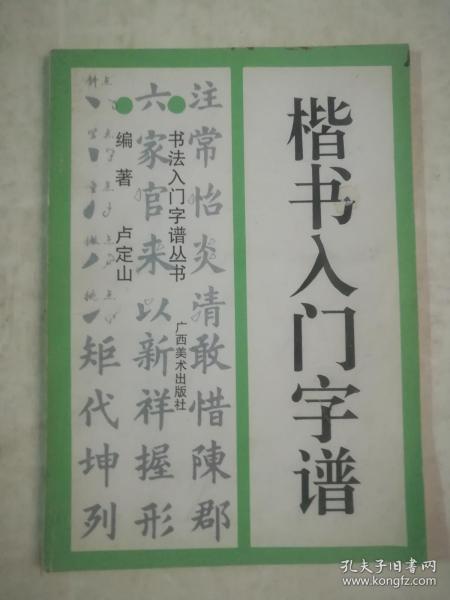 楷书入门字谱
注常怡炎清敢惜陳郡
书法入门字谱丛书
广西美术出版社
六家官来以新祥握形
编著 卢定山
矩代坤列
斜点
点
点
点
点
孔夫子旧书网
www.kongfz.com